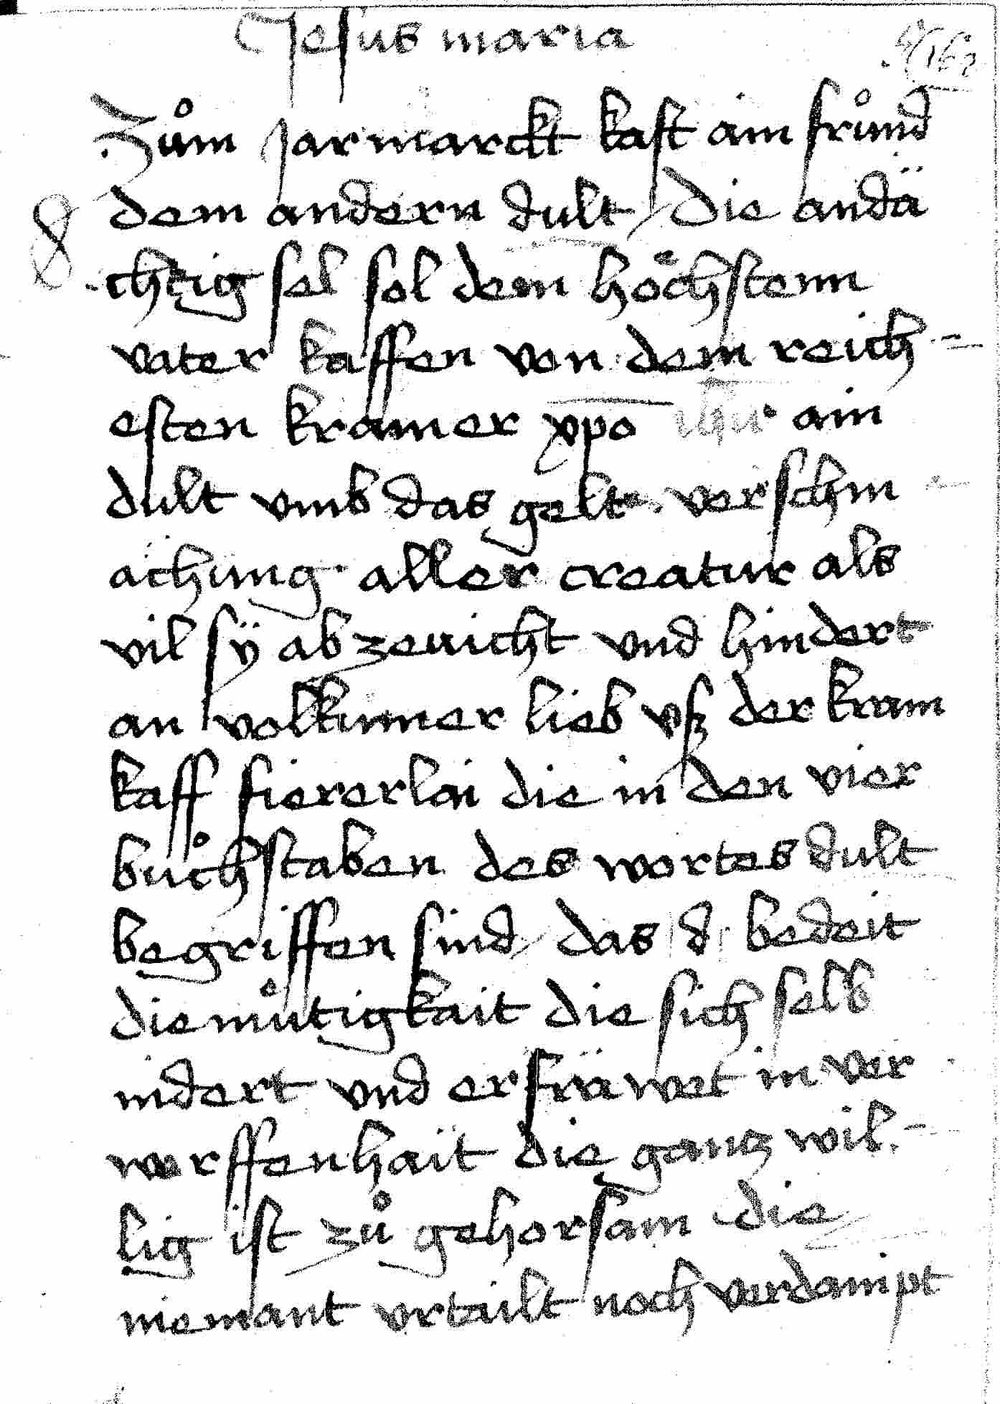 Jesus maria
162
Zům Jarmarckt kaft ain frůnd
dem andern dult / Die andä
chtig sel sol dem höchstenn
vater kaffen von dem reich-
esten kramer xpo ain
dult vmb das gelt verschm
ächung aller creatur als
vil sÿ ab zeuicht vnd hindert
an volkumer lieb vsz der kram
kaff fiererlai die in den vier
bůchstaben des wortes dult
begriffen sind das d bedeit
diemůtigkait die sich selb
nidert vnd erfräwet in ver
werffenhait die gantz wil-
lig ist zů gehorsam die
niemant vrtailt noch verdampt